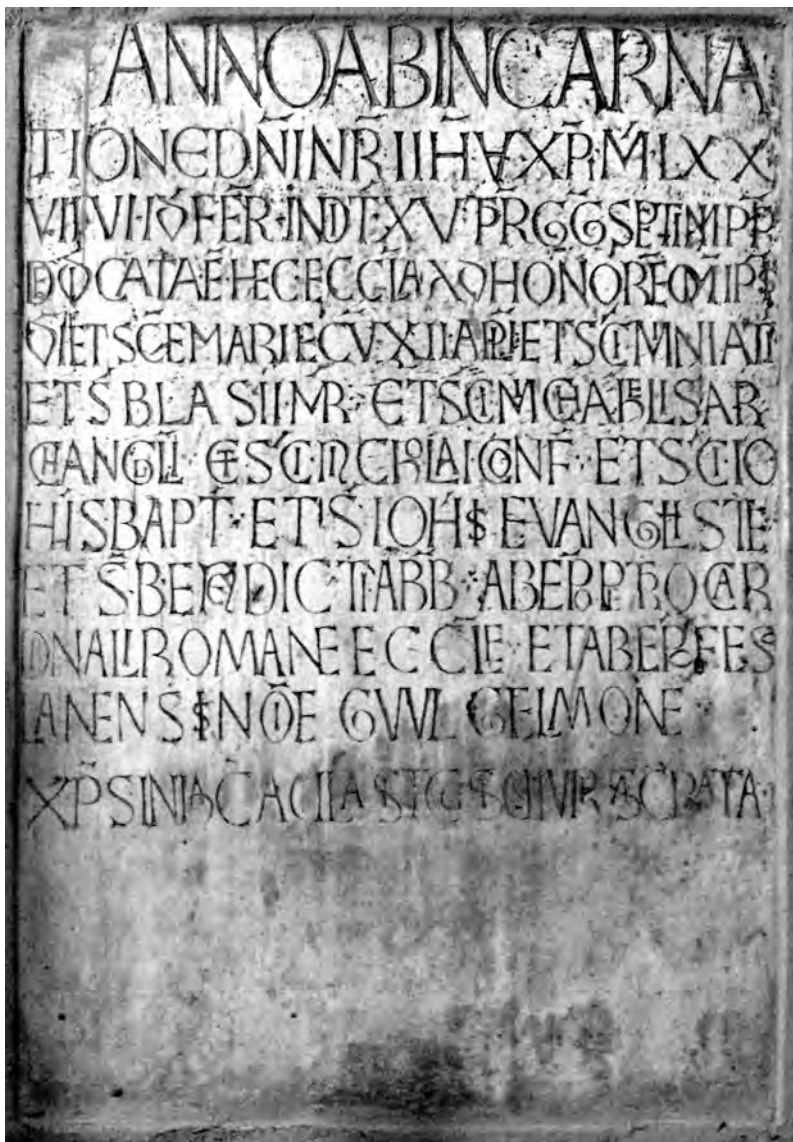 ANNO AB INCARNA
TIONE DNI NRI IHV XPI M LXX
VII VI ID FER INDT XV TPR GG SEPTIMI PP
DEDICATA E HEC ECCLA AD HONORE OMIPS
DI ET SCE MARIE CV XII APLI ET SCI MINIATI
ET S BLASII MR ET SCI MICHAHELIS AR
CHANGLI ET SCI NICHLAI CONF ET SCI IO
HIS BAPT ET S IOHIS EVANGLISTE
ET S BENEDICTI ABB AB EP PTRO CAR
DINALI ROMANE ECCLIE ET AB EP FES
LANENSI NOIE GVVLGELMO NE
XPS IN